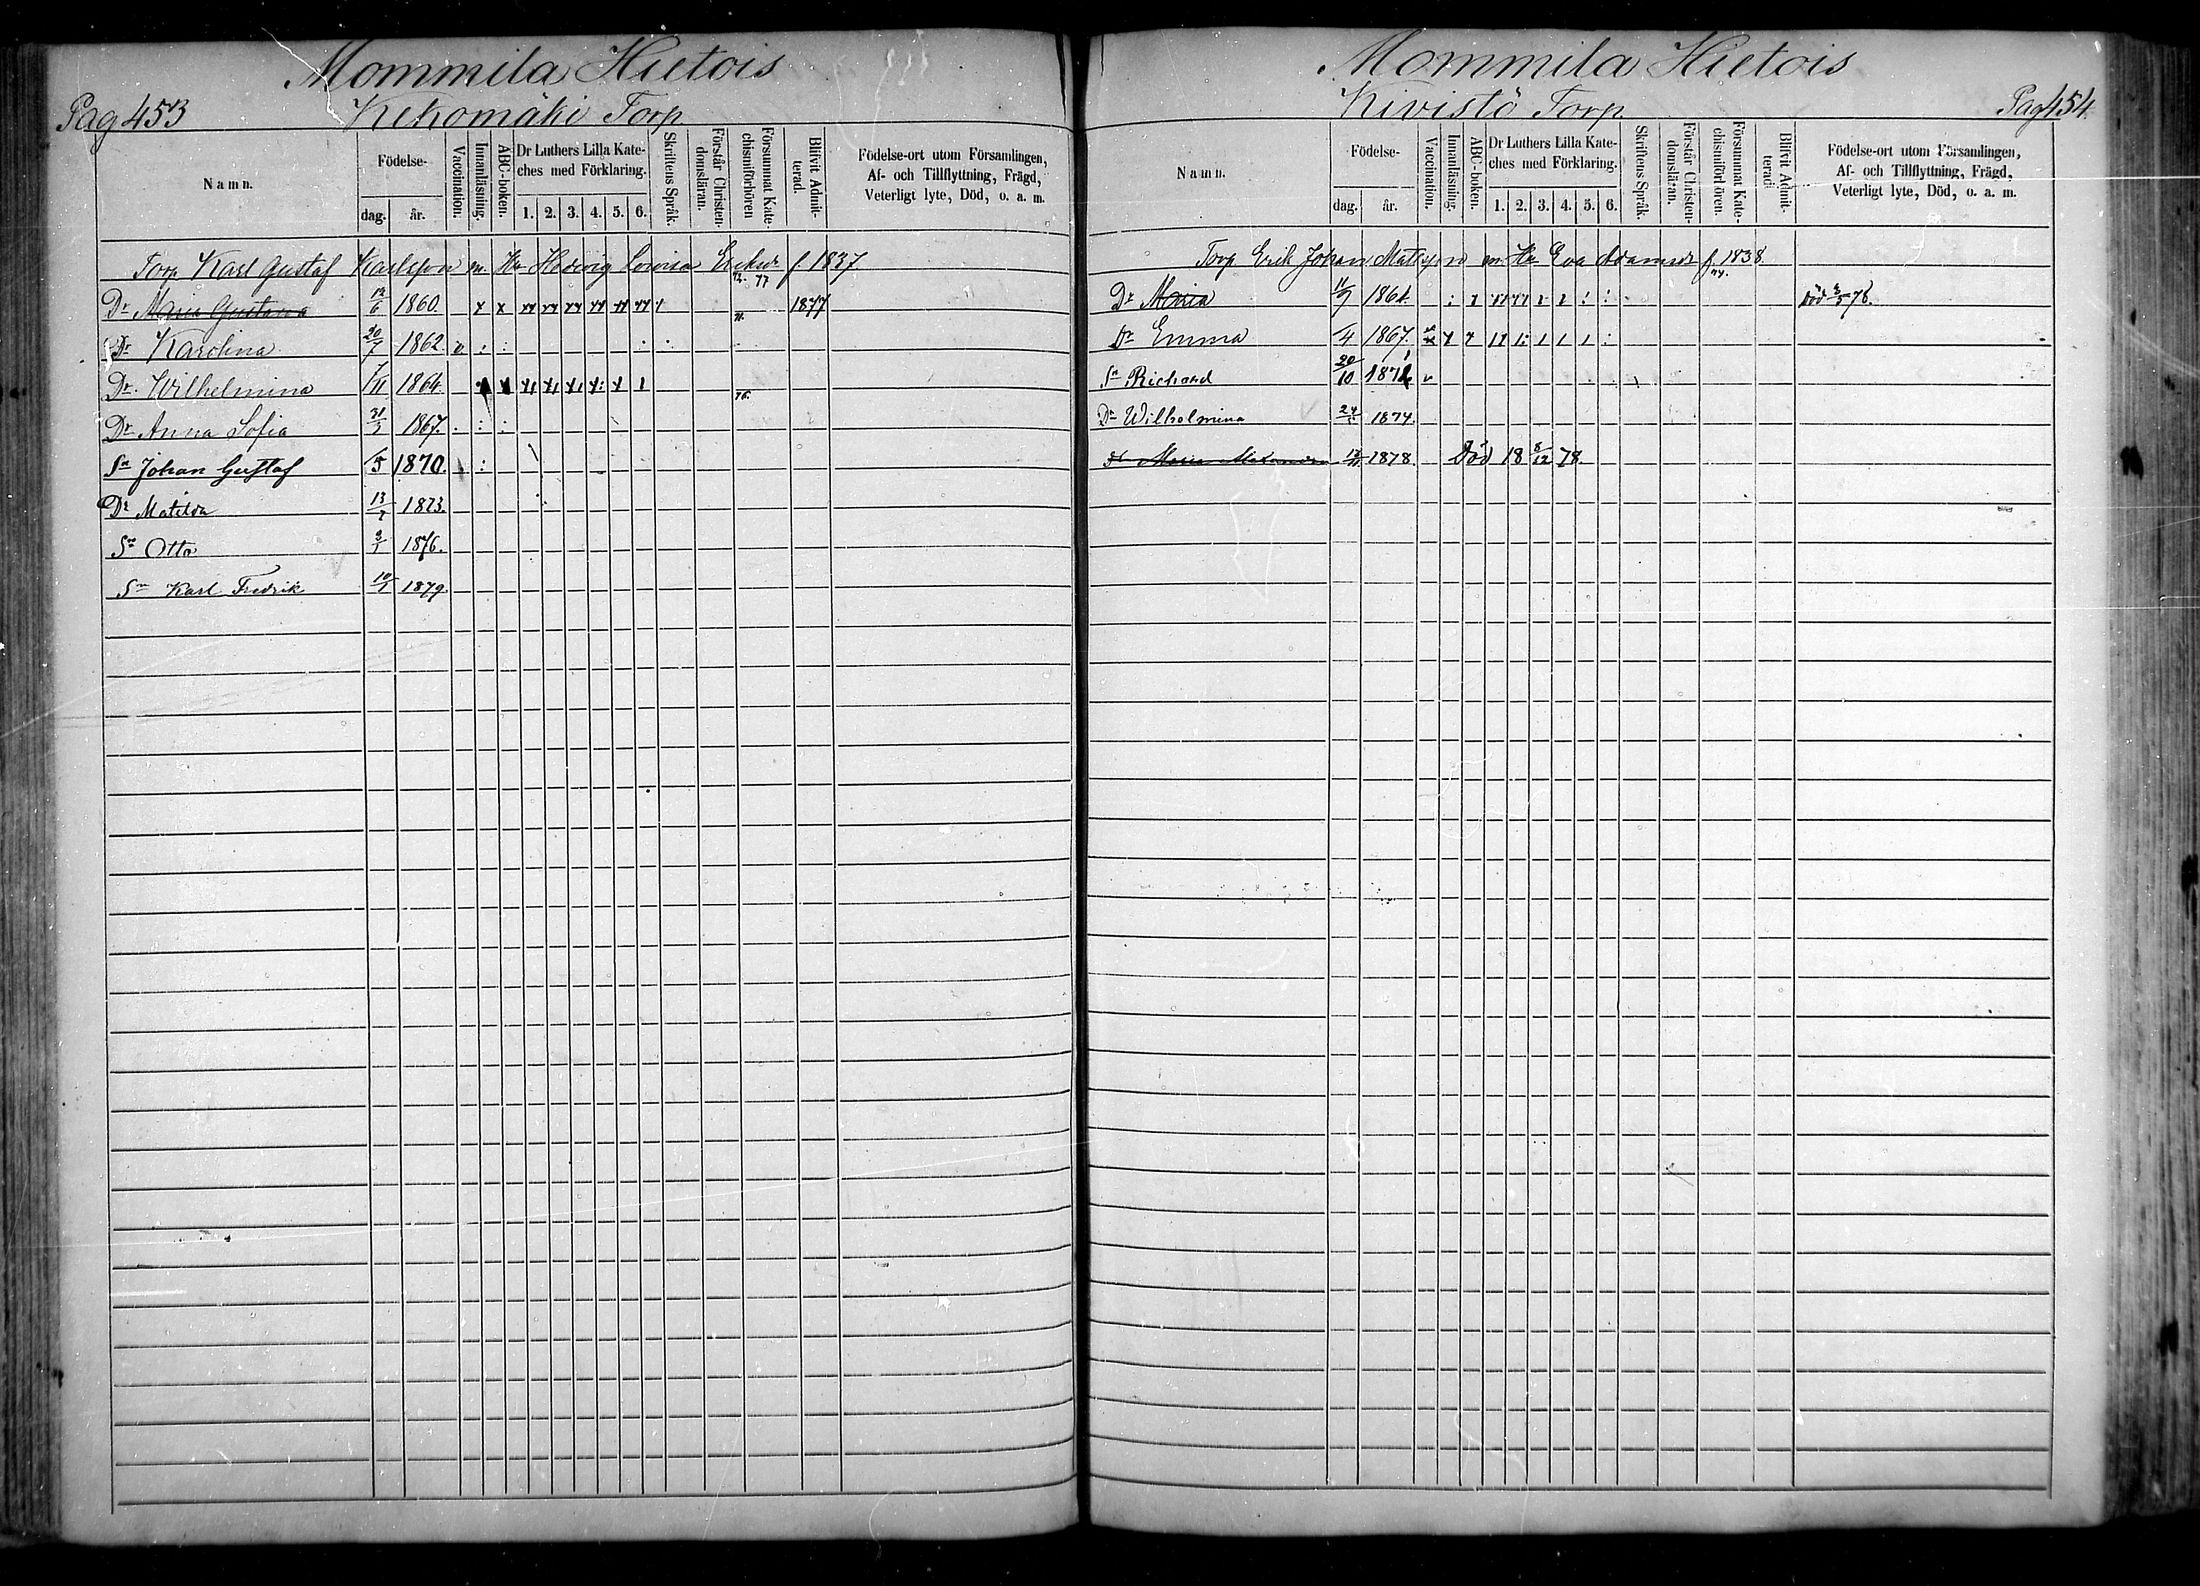 Mommila Hietois
Pag 453
Kekomäki Torp
Namn.
Födelse-
dag.
år.
Vaccination.
Innanläsning.
ABC-boken.
Dr Luthers Lilla Kate-
ches med Förklaring.
1. 2. 3. 4. 5. 6.
Skriftens Språk.
Förstår Christen-
domsläran.
Försummat Kate-
chismiförhören
Blifvit Admit-
terad.
Födelse-ort utom Församlingen,
Af- och Tillflyttning, Frägd,
Veterligt lyte, Död, o. a. m.
Torp Karl Gustaf Karlsson m. Hu Hedvig Lovisa f 1837.
77
Dr Maria Gustava 12/6 1860. x x 1877
Dr Karolina 20/7 1862 v
Dr Wilhelmina 7/11 1864. 76.
Dr Anna Sofia 1867.
Sn Johan Gustaf 1870
Dr Matilda 1873
Sn Otto 1876.
Sn Karl Fredrik 1879.
Mommila Hietois
Kivistö Torp
Pag 454
Namn.
Födelse-
dag.
år.
Vaccination.
Innanläsning.
ABC-boken.
Dr Luthers Lilla Kate-
ches med Förklaring.
1. 2. 3. 4. 5. 6.
Skriftens Språk.
Förstår Christen-
domsläran.
Försummat Kate-
chismiförhören.
Blifvit Admit-
terad.
Födelse-ort utom Församlingen,
Af- och Tillflyttning, Frägd,
Veterligt lyte, Död, o. a. m.
Torp Erik Johan Mattsson m. Hu Eva Adamsdr f. 1838.
Dr Maria 1864. Död 78.
Dr Emma 4 1867.
Sn Richard 20/10 1871 v
Dr Wilhelmina 1874.
Dr Maria Alexandra 1878 Död 18 8/12 78.